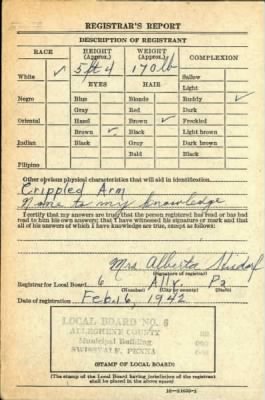 REGISTRAR'S REPORT
DESCRIPTION OF REGISTRANT
RACE HEIGHT (Approx.) WEIGHT (Approx.) COMPLEXION
5 ft 4 170 lb
White ✓ EYES HAIR Sallow
Light
Negro Blue Blonde Ruddy ✓
Gray Red Dark
Oriental Hazel Brown ✓ Freckled
Brown ✓ Black Light brown
Indian Black Gray Dark brown
Bald Black
Filipino
Other obvious physical characteristics that will aid in identification
Crippled Arm
None to my knowledge
I certify that my answers are true; that the person registered has read or has had
read to him his own answers; that I have witnessed his signature or mark and that
all of his answers of which I have knowledge are true, except as follows:
Mrs Alberta
(Signature of registrar)
Registrar for Local Board 6 Ally. Pa
(Number) (City or county) (State)
Date of registration Feb. 16, 1942
LOCAL BOARD NO. 6
ALLEGHENY COUNTY
Municipal Building
SWISSVALE, PENNA
(STAMP OF LOCAL BOARD)
(The stamp of the Local Board having jurisdiction of the registrant
shall be placed in the above space)